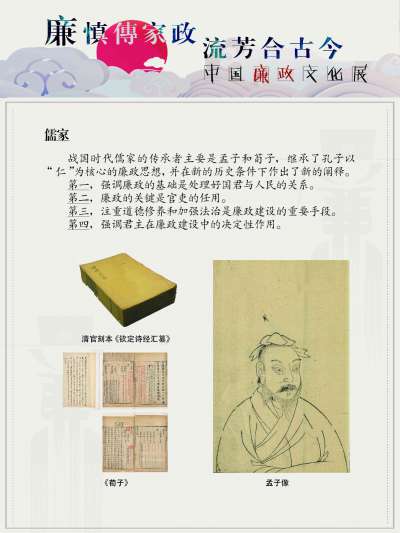 廉慎傳家政
流芳合古今
中国廉政文化展
儒家
战国时代儒家的传承者主要是孟子和荀子，继承了孔子以
“仁”为核心的廉政思想，并在新的历史条件下作出了新的阐释。
第一，强调廉政的基础是处理好国君与人民的关系。
第二，廉政的关键是官吏的任用。
第三，注重道德修养和加强法治是廉政建设的重要手段。
第四，强调君主在廉政建设中的决定性作用。
清官刻本《钦定诗经汇纂》
《荀子》
孟子像